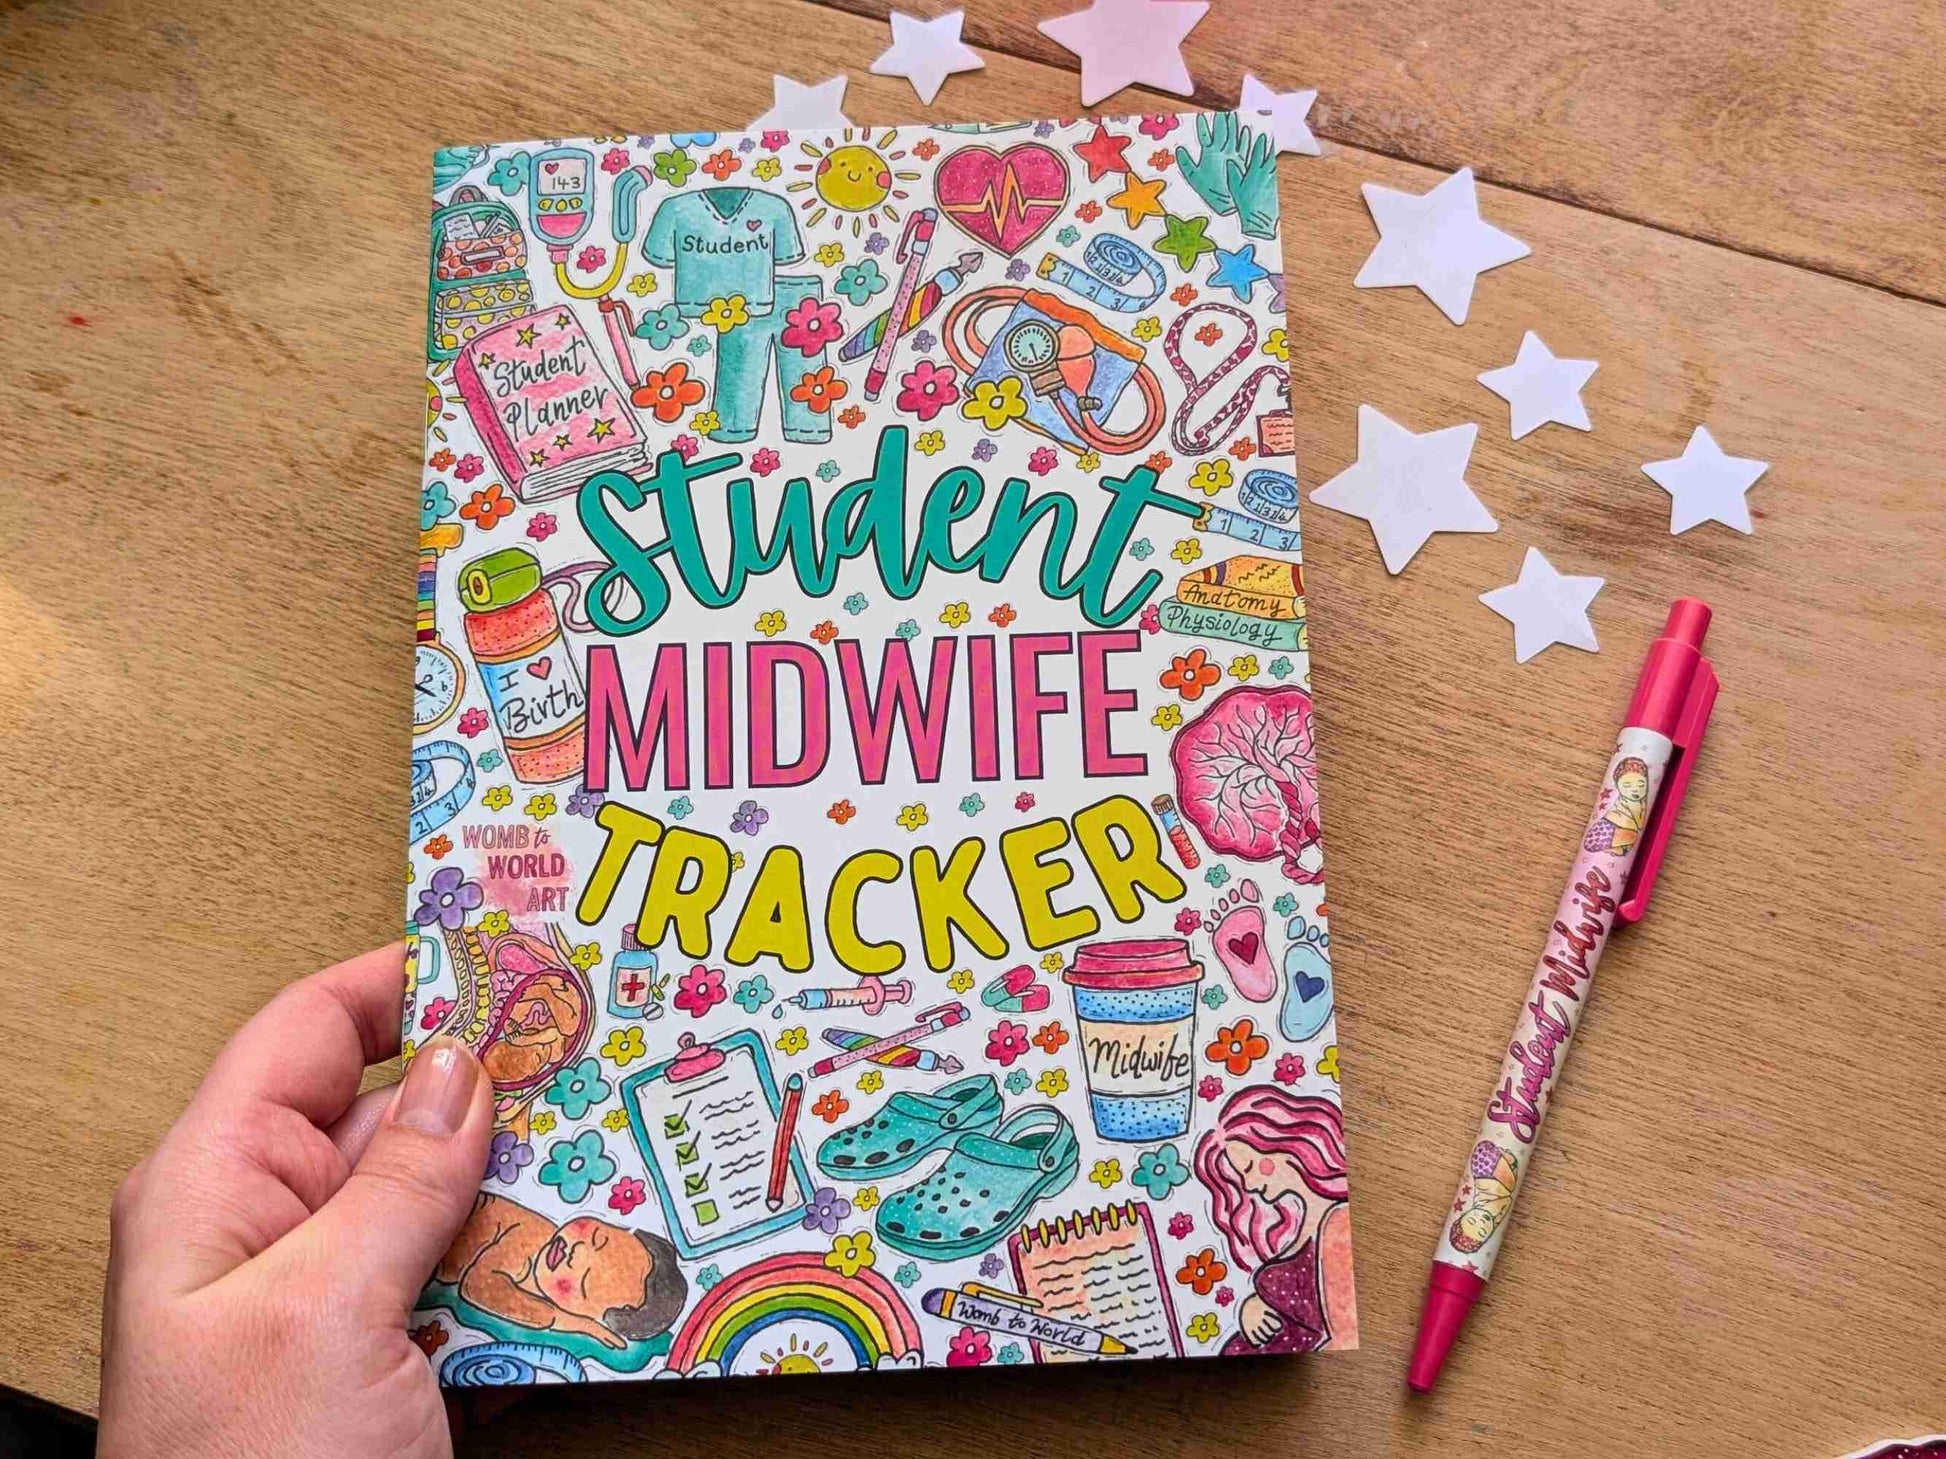 143
Student
Student
Planner
1 2 3
Student
I
Birth
Anatomy
Physiology
MIDWIFE
WOMB to
WORLD
ART
TRACKER
Midwife
Womb to World
Student Midwife